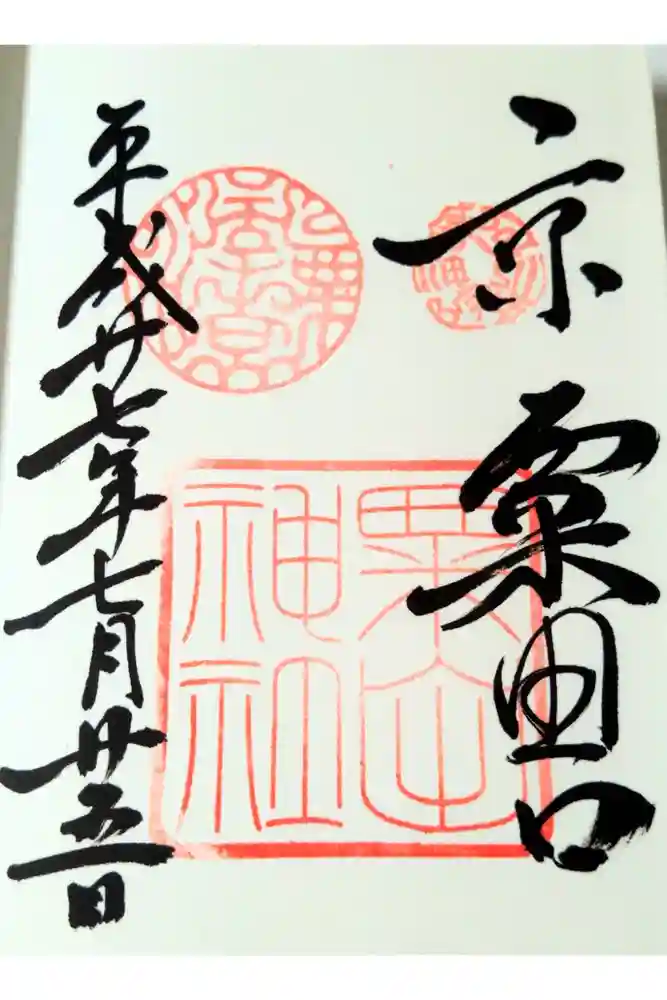 京 粟田口
粟田
神社
平成廿七年七月廿五日